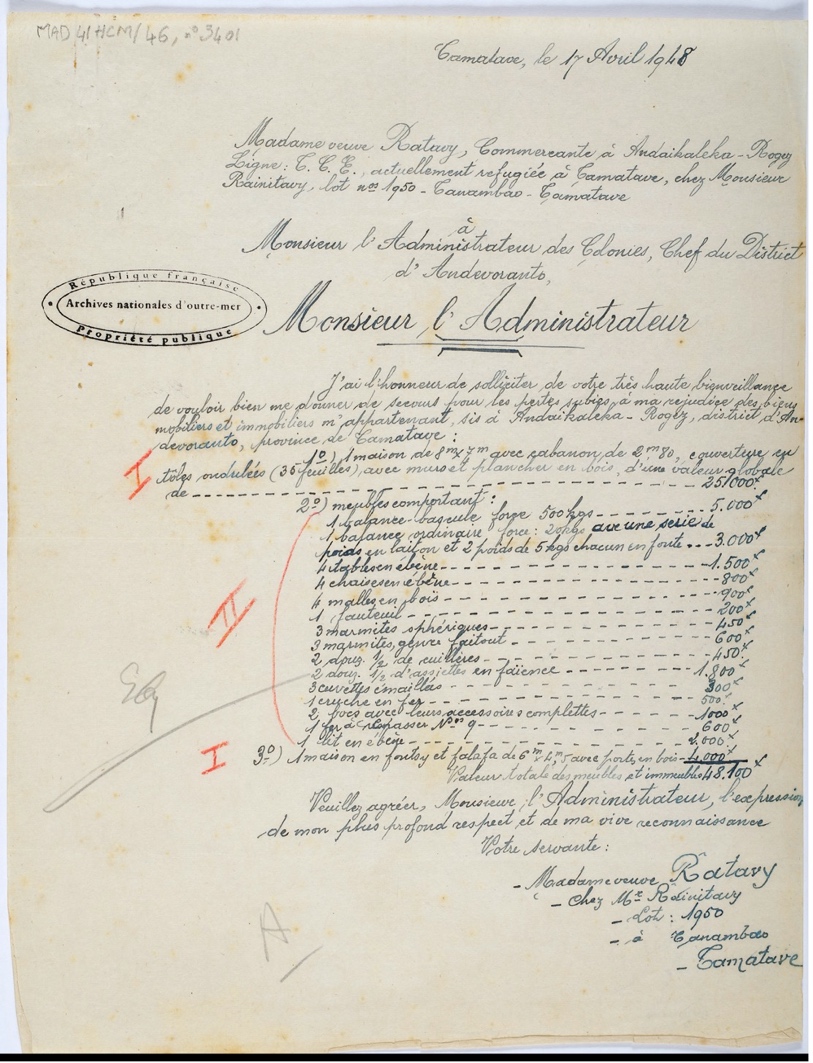 MAD 41 HCM/46, n° 3401
Tamatave, le 17 Avril 1948
Madame veuve Ratavy, Commercante à Andaikaleka - Rogez
Ligne: T. C. E., actuellement refugiée à Tamatave, chez Monsieur
Rainitavy, lot nos 1950 - Tanambao - Tamatave
à
Monsieur l'Administrateur des Colonies, Chef du District
d'Andevoranto,
République française
Archives nationales d'outre-mer
Propriété publique
Monsieur l'Administrateur
J'ai l'honneur de solliciter de votre très haute bienveillance
de vouloir bien me donner de secours pour les pertes subies, à ma rejudice des biens
mobiliers et immobiliers m'appartenant, sis à Andaikaleka - Rogez, district d'An-
devoranto, province de Tamatave :
I
1°) 1 maison de 8m x 7m avec cabanon de 2m80, couverture en
tôles ondulées (35 feuilles), avec murs et plancher en bois, d'une valeur globale
de --- 25.000f
2°) meubles comportant :
1 balance-bascule force 500 kgs --- 5.000f
1 balance ordinaire force : 20kgs avec une serie de
poids en laiton et 2 poids de 5 kgs chacun en fonte --- 3.000f
4 tables en ébène --- 1.500f
4 chaises en ébène --- 800f
4 malles en bois --- 900f
II
1 fauteuil --- 200f
3 marmites sphériques --- 450f
3 marmites, genre faitout --- 600f
2 douz. 1/2 de cuillères --- 450f
2 douz. 1/2 d'assiettes en faïence --- 1.800f
3 cuvettes émaillás --- 300f
1 cruche en fer --- 500f
2 bocs avec leurs accessoires complettes --- 1000f
1 fer à repasser Nos 9 --- 600f
1 lit en ébène --- 2.000f
I
3°) 1 maison en fontsy et falafa de 6m x 4m,5 avec porte en bois - 4.000f
Valeur totale des meubles et immeubles 48.100f
Veuillez agréer, Monsieur, l'Administrateur, l'expression
de mon plus profond respect et de ma vive reconnaissance
Votre servante :
- Madame veuve Ratavy
- chez Mr Rainitavy
- Lot : 1950
- à Tanambao
- Tamatave
A